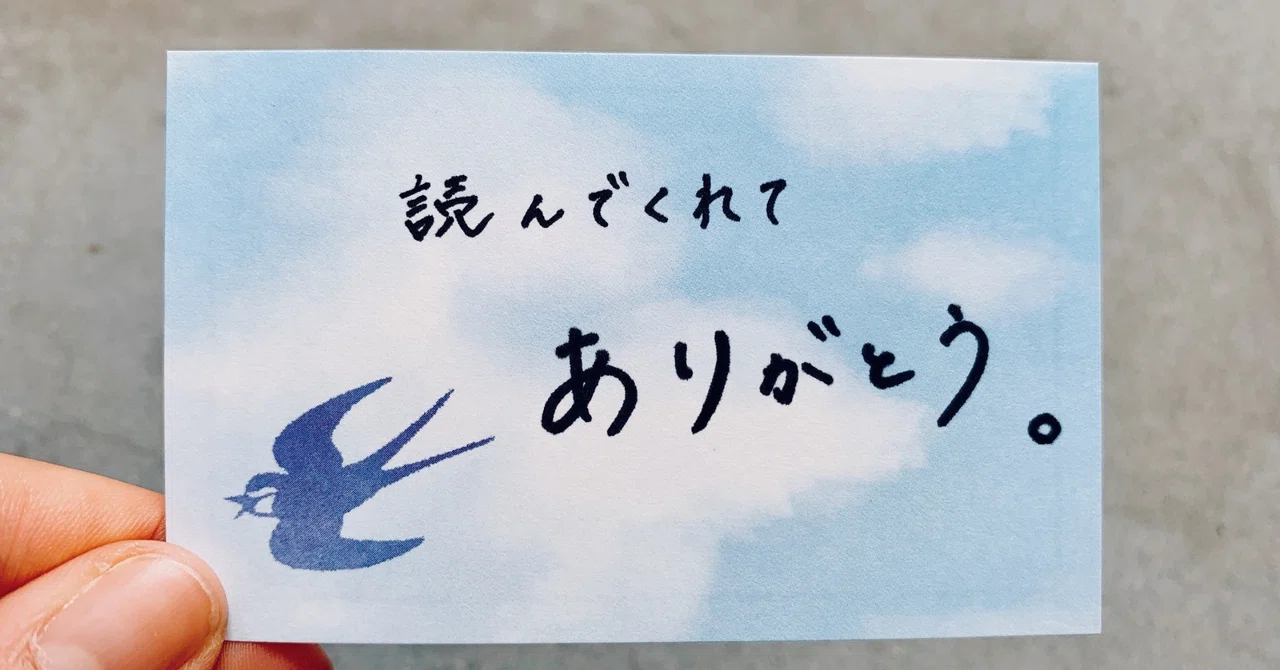 読んでくれて
ありがとう。